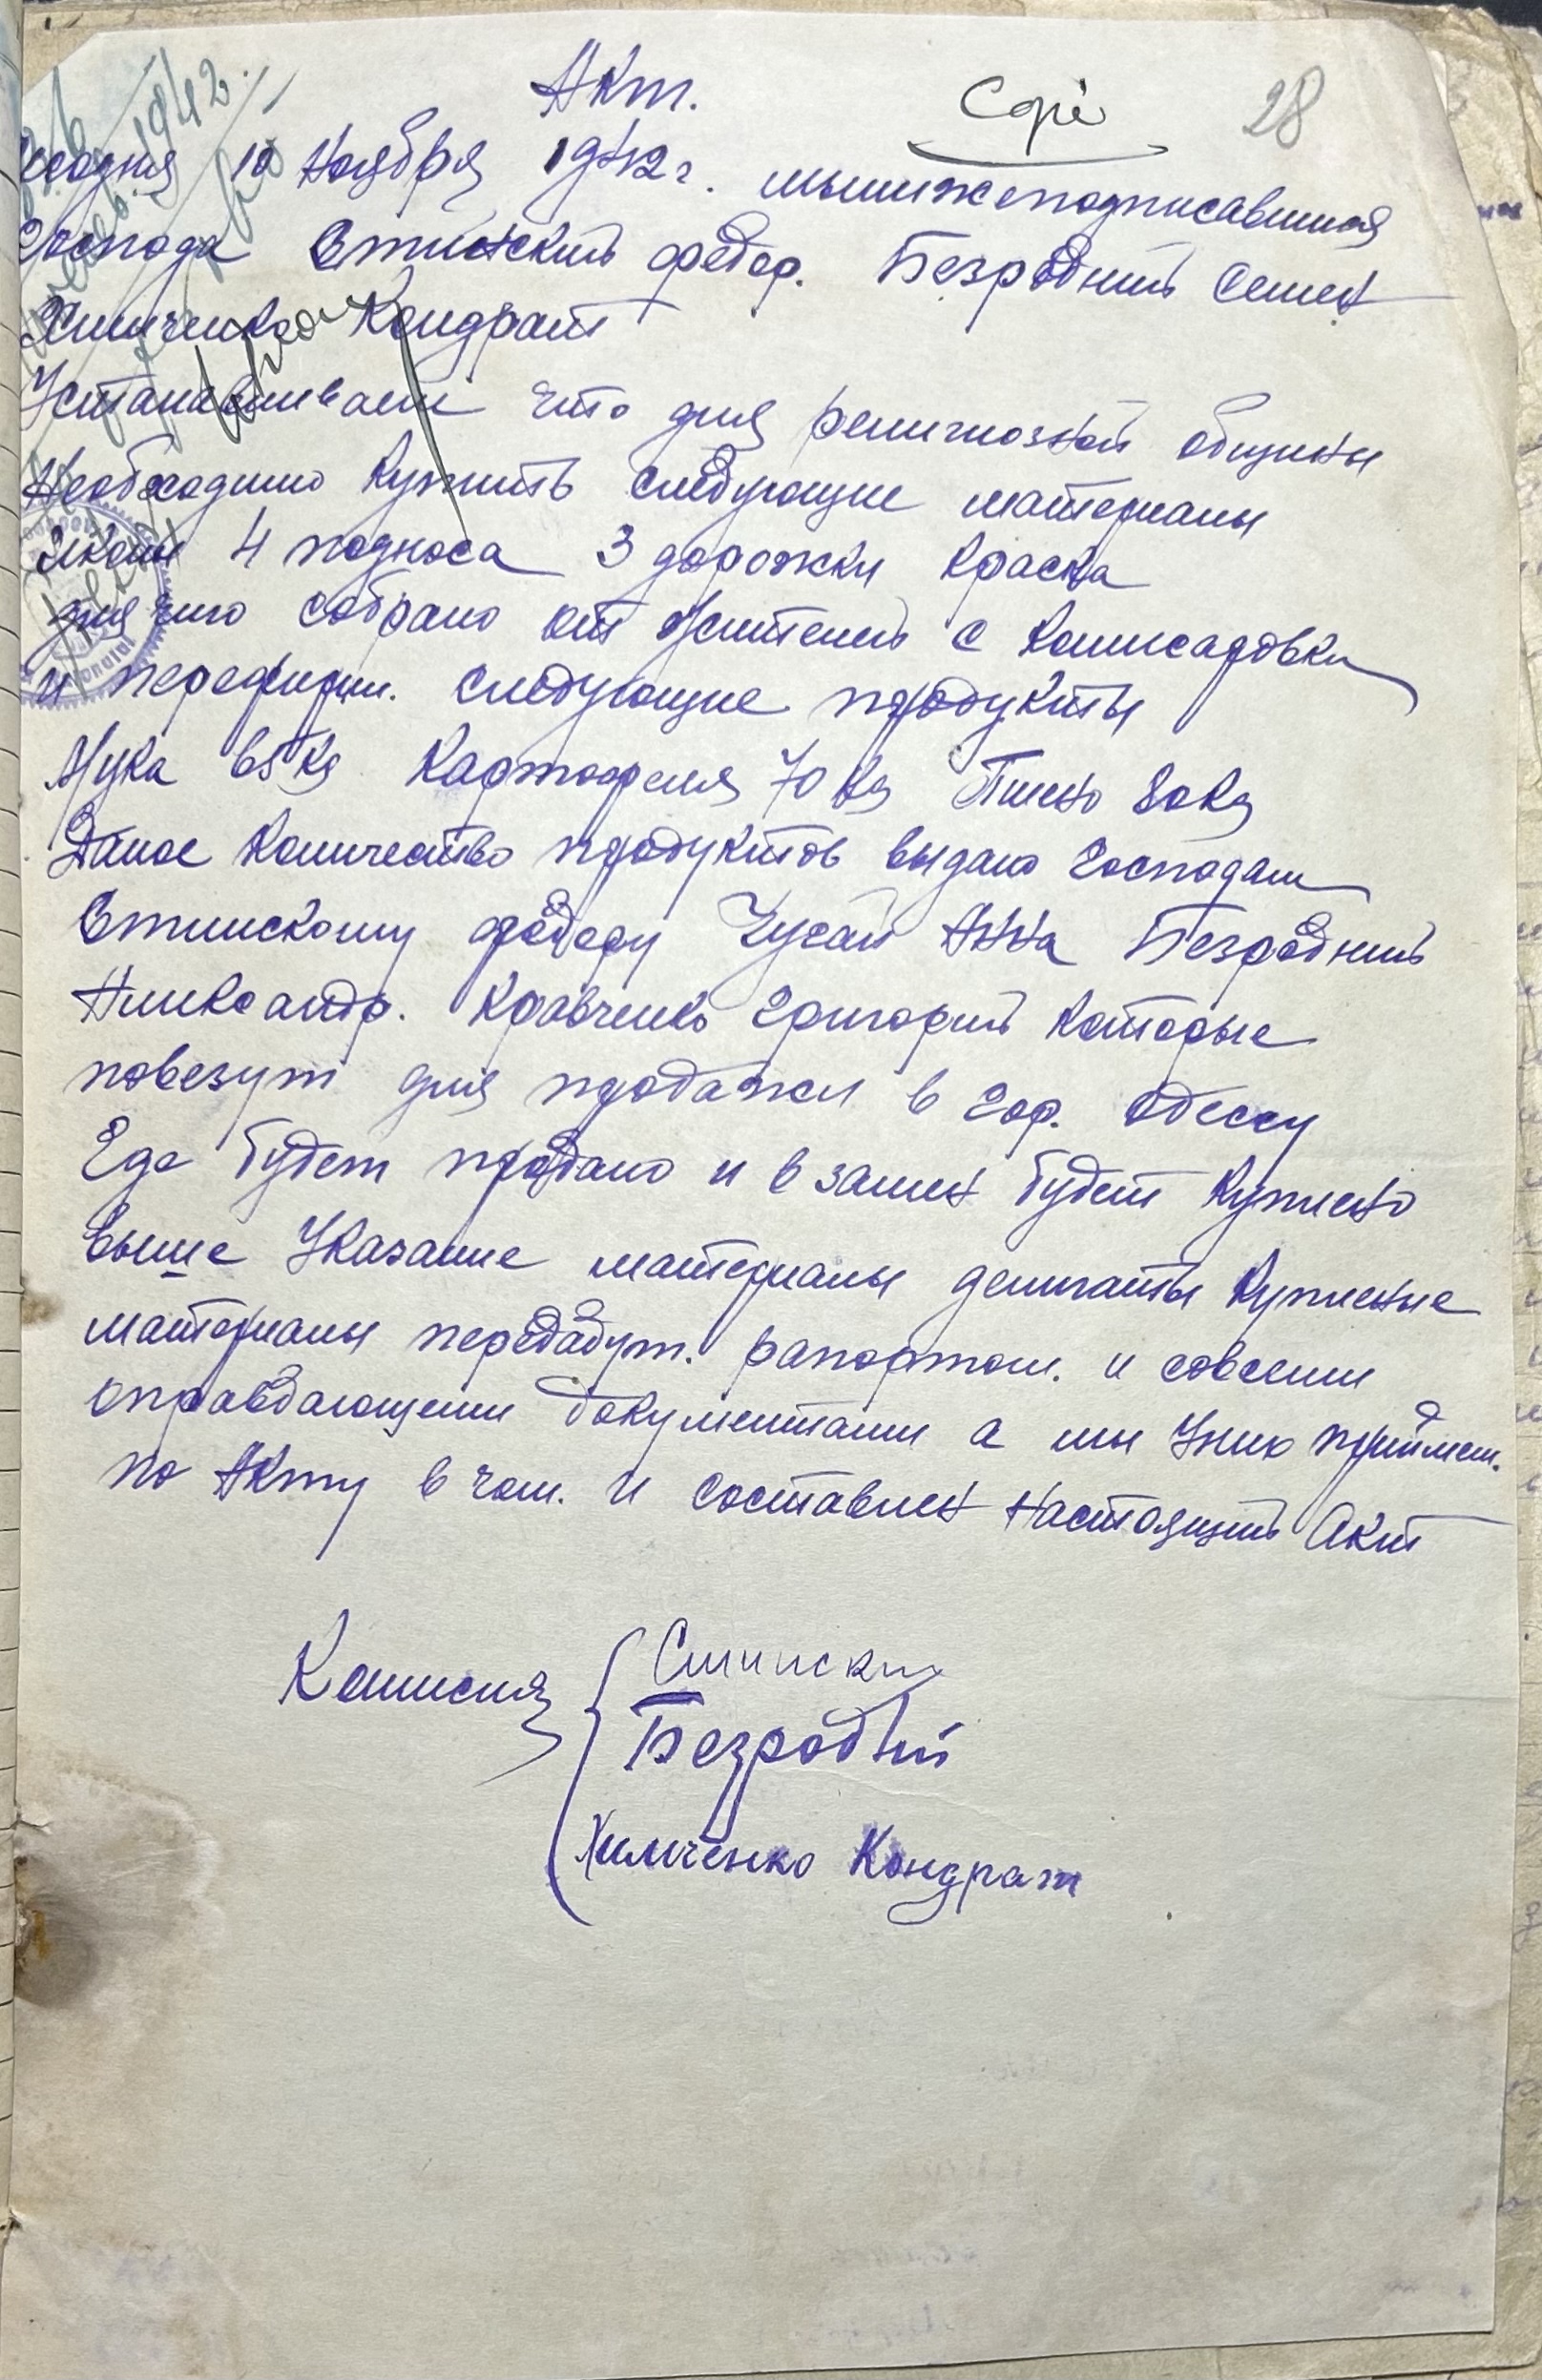 Акт.
Copie 28
Сегодня 10 Ноября 1942 г. мынижеподписавшися
Господа Стинский Федор. Безродний Семен
Химченко Кондрат
Устанавливаем что для религиозной общины
Необходимо Купить следующие материалы
Иконы 4 подноса 3 дорожки Краска
для чего собрано от Жителей с Комисаровки
и переферии. следующие продукты
Мука 65 Кg Картофеля 70 Кg Пшено 80 Кg
Даное Количество продуктов выдано Господам
Стинскому Федору Чусай Анна Безродний
Аликсандр. Кравченко Григорий Которые
повезут для продажи в гор. Одессу
Где будет продано и взамен будет Куплено
выше Указание материалы делигаты Купленые
материалы передадут. рапортом. и совсеми
оправдающеми документами а мы Уних приймем.
по Акту в чом. и составлен Настоящий Акт
Комисия
Стински
Безродний
Химченко Кондрат